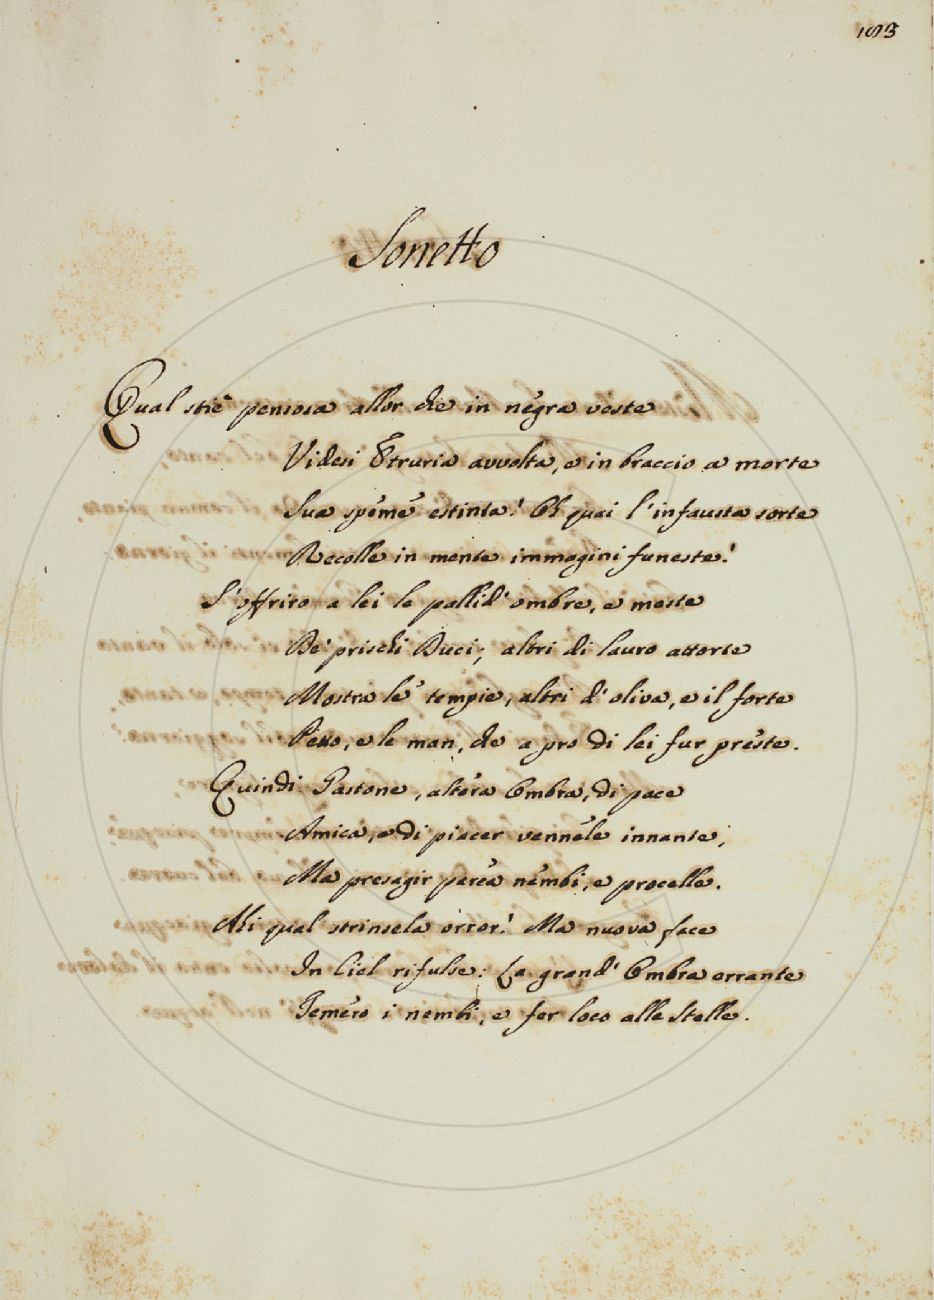 193
Sonetto
Qual stiè pensosa allor che in negra veste
Videsi Etruria avvolta, e in braccio a morte
Sua speme estinta! Oh quai l'infausta sorte
Recolle in mente immagini funeste!
S'offriro a lei le pallid' ombre, e meste
De' prischi Duci; altri di lauro attorte
Mostra le tempie, altri d' oliva, e il forte
Petto, e le man, che a pro di lei fur preste.
Quindi Gastone, altera Ombra, di pace
Amica, e di piacer vennele innante;
Ma presagir parea nembi, e procelle.
Ahi qual strinsela orror! Ma nuova face
In Ciel rifulse: La grand' Ombra errante
Temero i nembi, e fer loco alle Stelle.